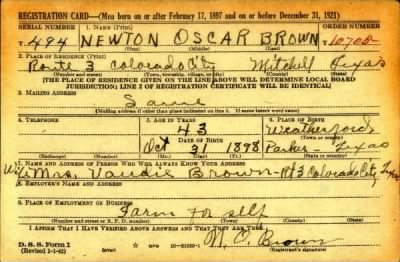 REGISTRATION CARD—(Men born on or after February 17, 1897 and on or before December 31, 1921)
SERIAL NUMBER 1. NAME (Print) ORDER NUMBER
T. 494 NEWTON OSCAR BROWN T 10705
2. PLACE OF RESIDENCE (Print)
Route 3 Colorado City Mitchell Texas
(Number and street) (Town, township, village, or city) (County) (State)
[THE PLACE OF RESIDENCE GIVEN ON THE LINE ABOVE WILL DETERMINE LOCAL BOARD
JURISDICTION; LINE 2 OF REGISTRATION CERTIFICATE WILL BE IDENTICAL]
3. MAILING ADDRESS
Same
[Mailing address if other than place indicated on line 2. If same insert word same]
4. TELEPHONE 5. AGE IN YEARS 6. PLACE OF BIRTH
43 Weatherford
DATE OF BIRTH (Town or county)
Oct 31 1898 Parker - Texas
(Exchange) (Number) (Mo.) (Day) (Yr.) (State or country)
7. NAME AND ADDRESS OF PERSON WHO WILL ALWAYS KNOW YOUR ADDRESS
Mrs. Vaudie Brown - Rt 3 Colorado City, Tex
8. EMPLOYER'S NAME AND ADDRESS
9. PLACE OF EMPLOYMENT OR BUSINESS
Farm for self
(Number and street or R. F. D. number) (Town) (County) (State)
I AFFIRM THAT I HAVE VERIFIED ABOVE ANSWERS AND THAT THEY ARE TRUE.
D. S. S. Form 1
(Revised 1-1-42) (over) N. O. Brown
(Registrant's signature)